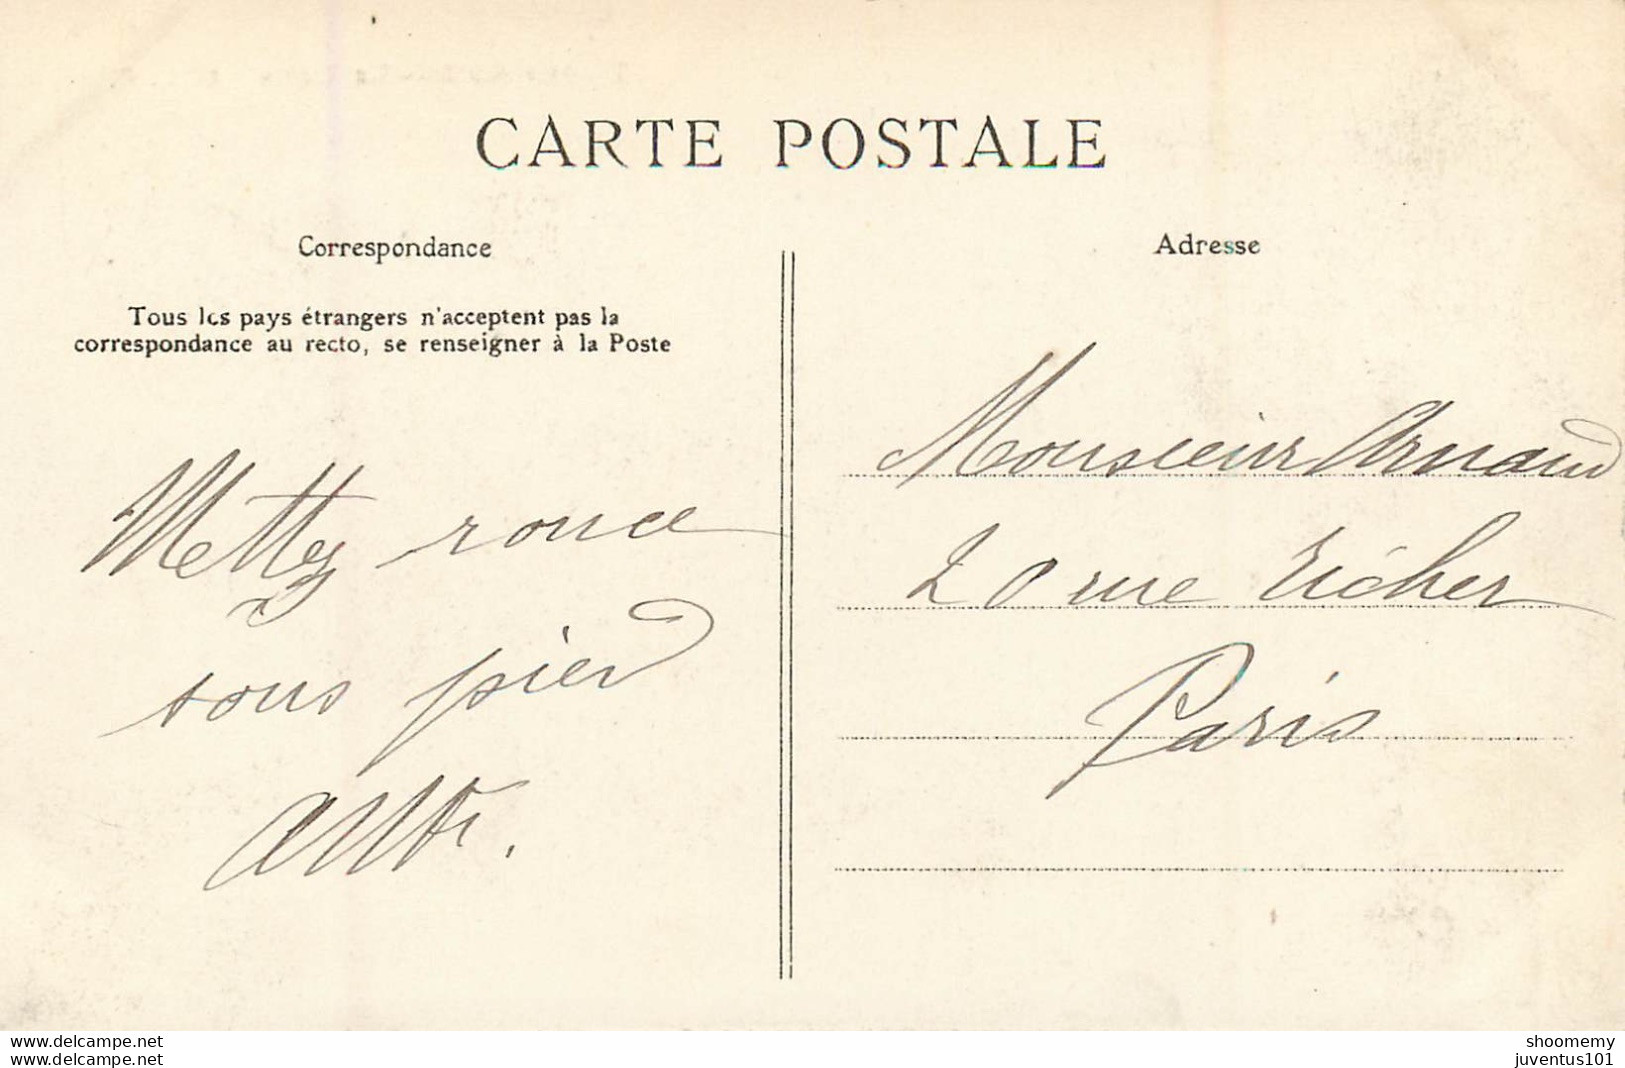 CARTE POSTALE
Correspondance
Tous les pays étrangers n'acceptent pas la
correspondance au recto, se renseigner à la Poste
Mettez
sous pied
Adresse
Monsieur Arnaud
20 rue Richer
Paris
www.delcampe.net
www.delcampe.net
shoomemy
juventus101